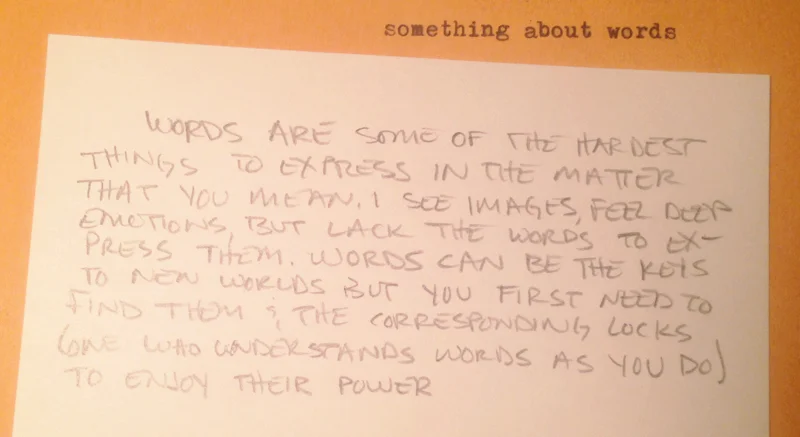 something about words
WORDS ARE SOME OF THE HARDEST
THINGS TO EXPRESS IN THE MATTER
THAT YOU MEAN. I SEE IMAGES, FEEL DEEP
EMOTIONS, BUT LACK THE WORDS TO EX-
PRESS THEM. WORDS CAN BE THE KEYS
TO NEW WORLDS BUT YOU FIRST NEED TO
FIND THEM & THE CORRESPONDING LOCKS
(ONE WHO UNDERSTANDS WORDS AS YOU DO)
TO ENJOY THEIR POWER